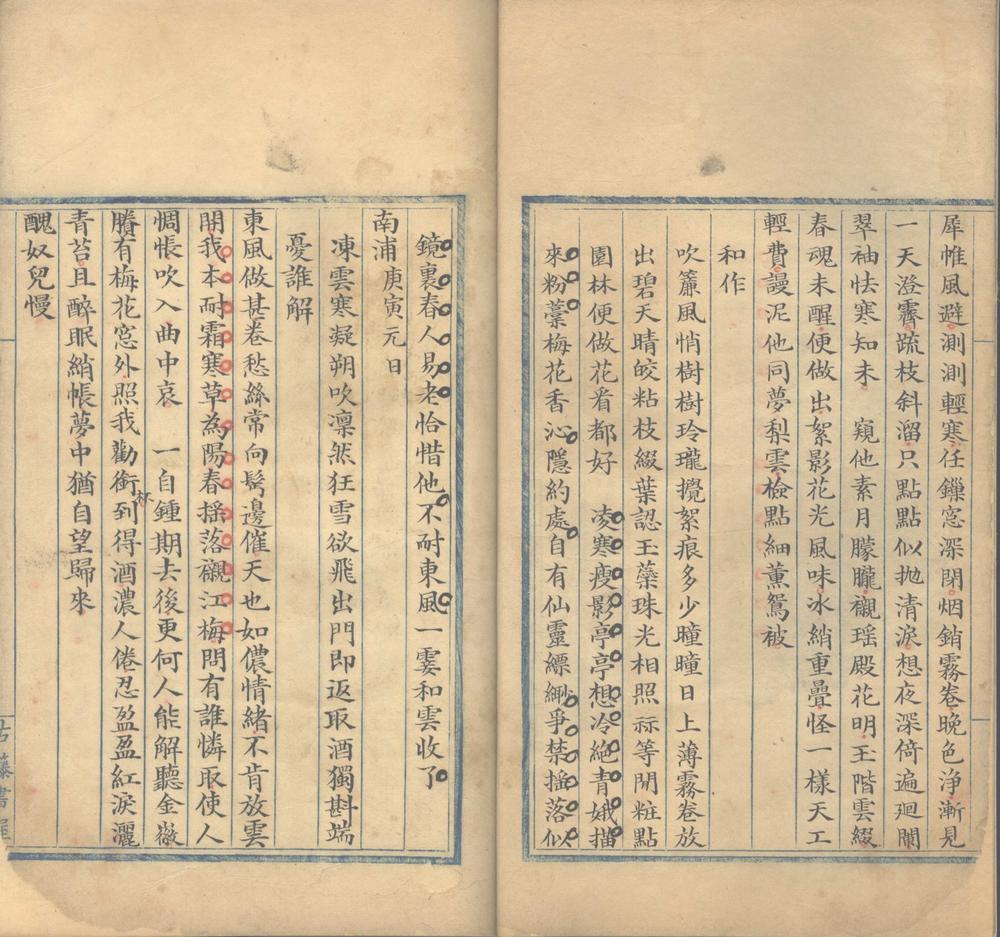 犀帷風避測測輕寒任鏁窓深閉烟銷霧卷晚色浄漸見
一天澄霽疏枝斜溜只點點似抛清淚想夜深倚遍廻闌
翠袖怯寒知未　窺他素月朦朧襯瑶殿花明玉階雲綴
春魂未醒便做出絮影花光風味冰綃重疊怪一樣天工
輕費謾泥他同夢梨雲檢點細薰鴛被
和作
吹簾風悄樹樹玲瓏攪絮痕多少曈曈日上薄霧卷放
出碧天晴皎粘枝綴葉認玉蘂珠光相照祘等閒粧點
園林便做花看都好　凌寒瘦影亭亭想冷絶青娥描
來粉藁梅花香沁隱約處自有仙靈縹緲爭禁摇落似
鏡裏春人易老恰惜他不耐東風一霎和雲收了
南浦庚寅元日
凍雲寒凝朔吹凛然狂雪欲飛出門即返取酒獨斟端
憂誰解
東風做甚卷愁絲常向鬂邊催天也如儂情緒不肯放雲
開我本耐霜寒草為陽春摇落襯江梅問有誰憐取使人
惆悵吹入曲中哀　一自鍾期去後更何人能解聽金徽
賸有梅花窓外照我勸銜杯到得酒濃人倦忍盈盈紅淚灑
青苔且醉眠綃帳夢中猶自望歸來
醜奴兒慢
古藤書屋